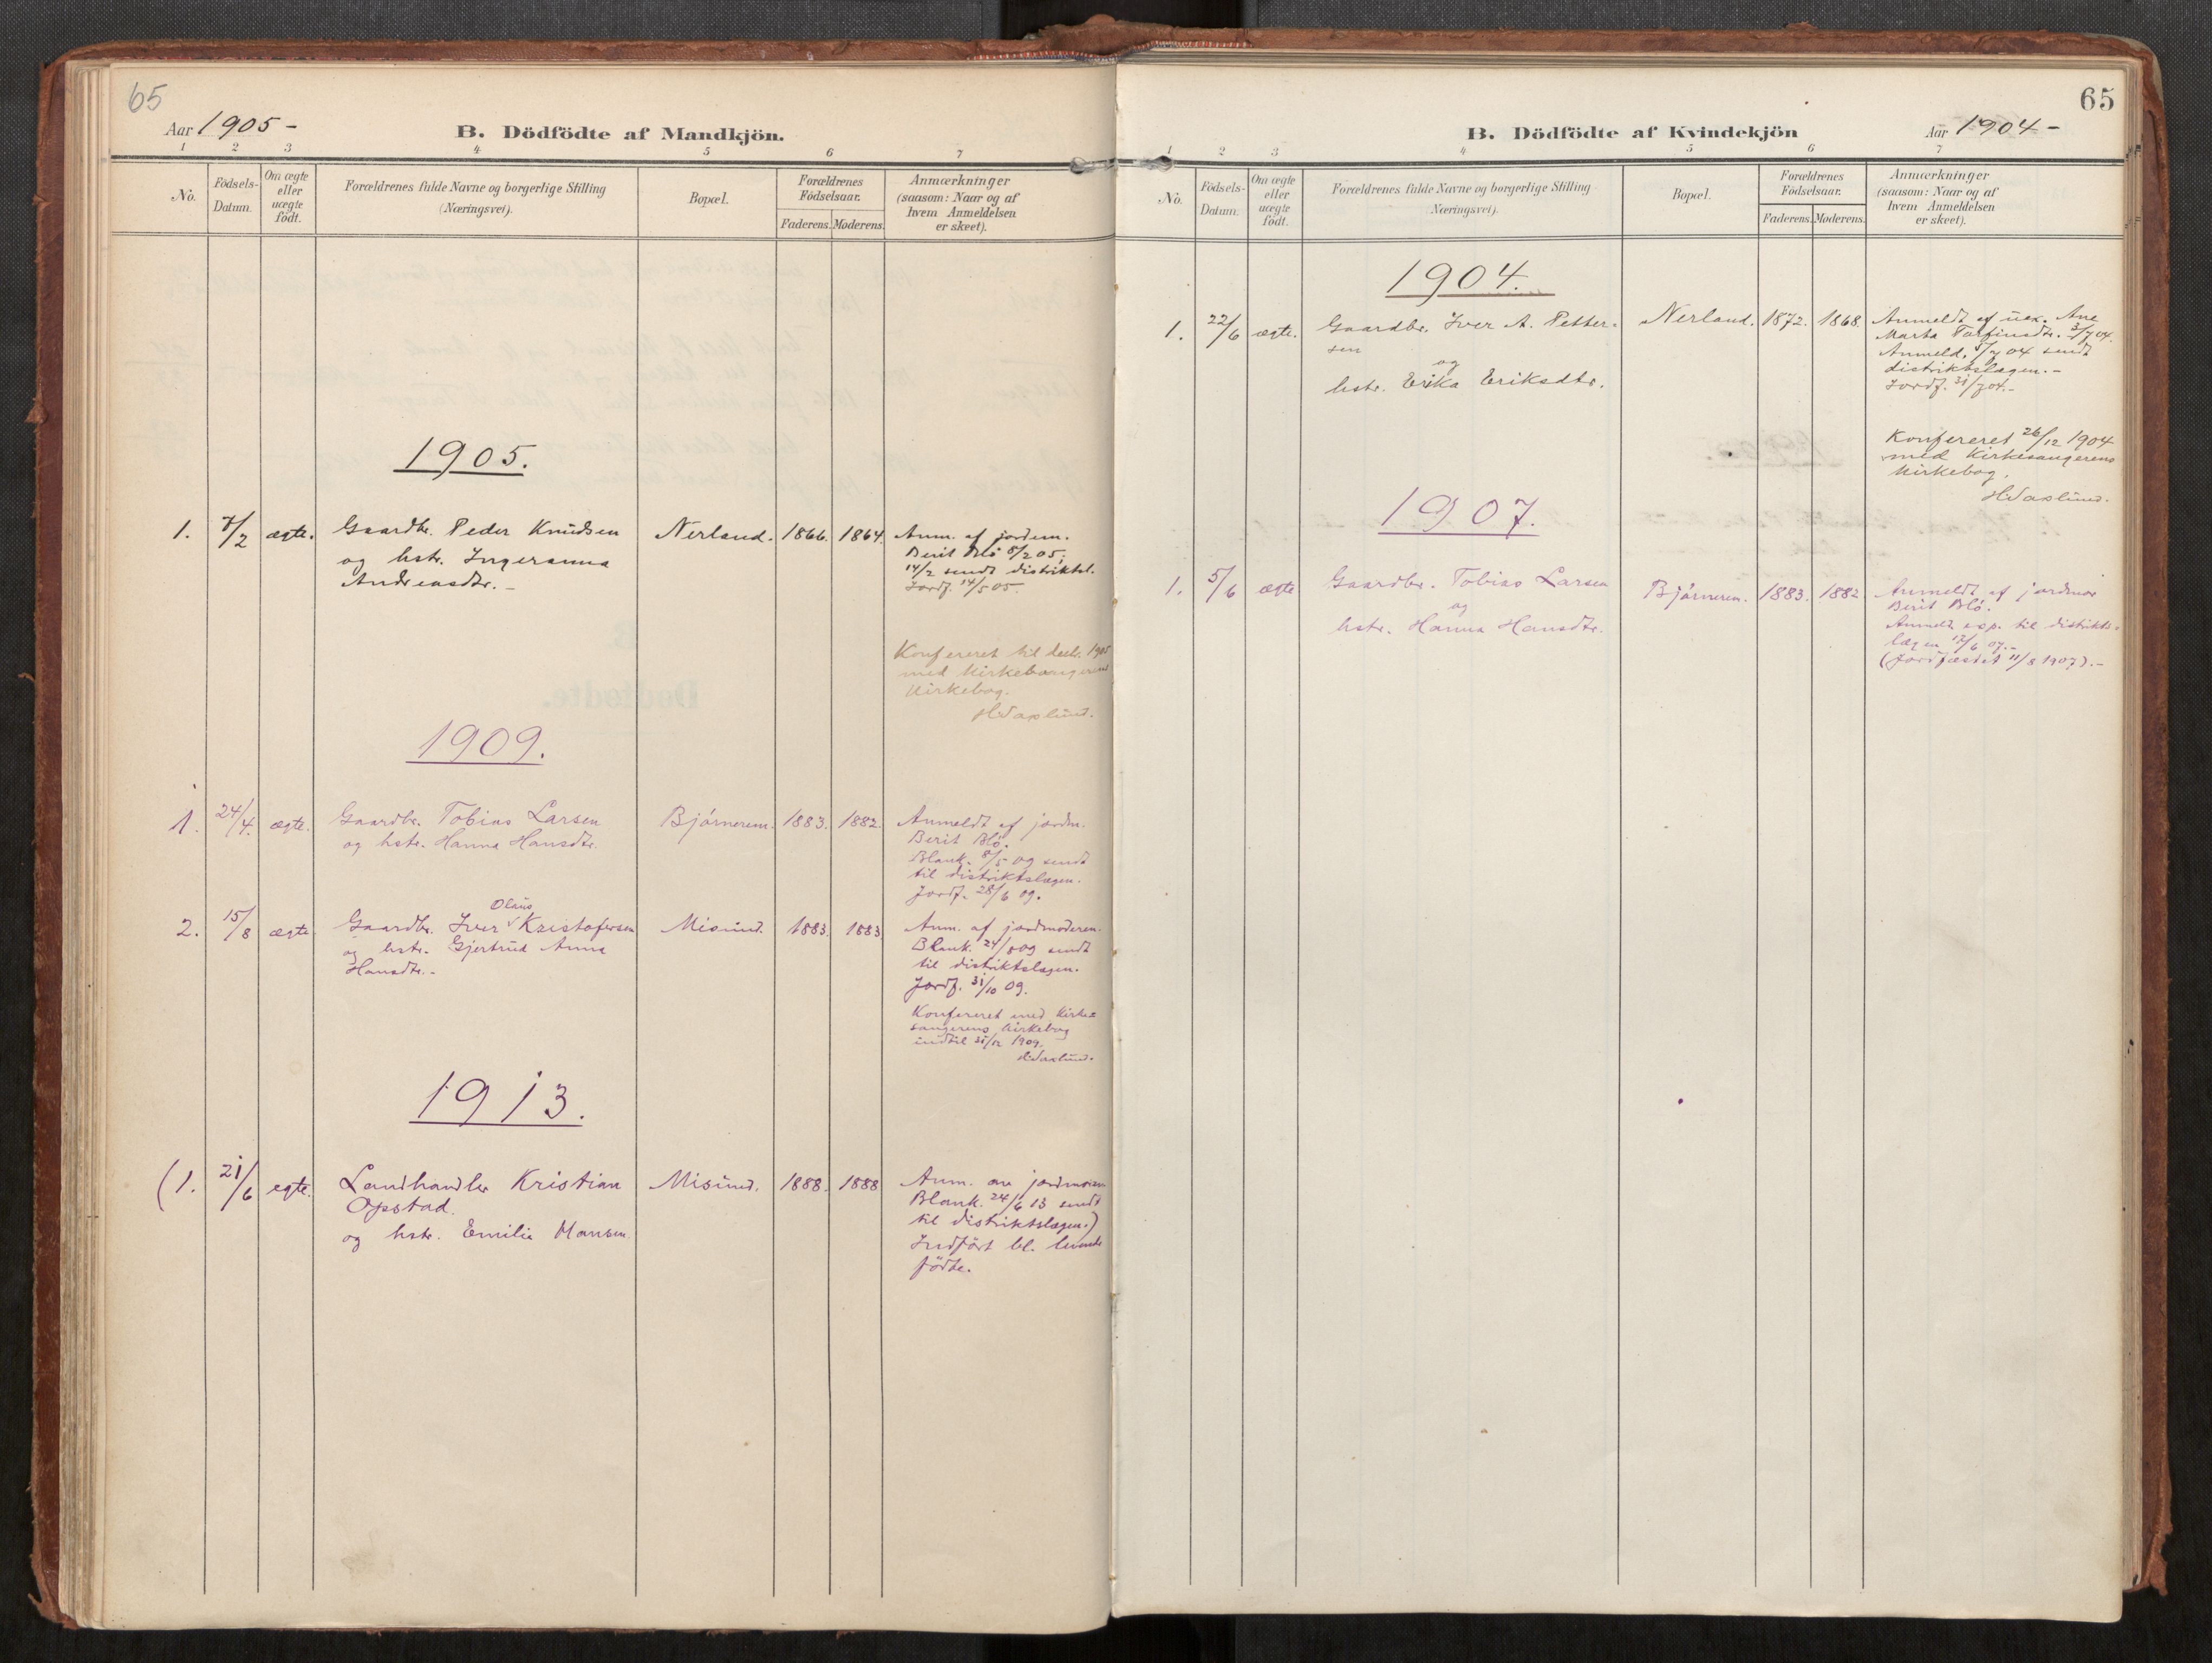 65
Aar 1905-
B. Dödfödte af Mandkjön.
1 2 3 4 5 6 7
No.
Födsels-
Datum.
Om ægte
eller
uægte
födt.
Forældrenes fulde Navne og borgerlige Stilling
(Næringsvei).
Bopæl.
Forældrenes
Födselsaar.
Faderens. Moderens.
Anmærkninger
(saasom: Naar og af
hvem Anmeldelsen
er skeet).
1905.
1. 7/2 ægte. Gaardbr. Peder Knudsen Nerland. 1866. 1864.
og hstr. Ingeranna
Andreasdtr. -
Anm. af jordem.
Berit Blö 8/2 05.
14/2 sendt distriktsl.
Jordf. 14/5 05.
Konfereret til decbr. 1905
med Kirkesangerens
Kirkebog.
HVaslund.
1909.
1. 24/4. ægte. Gaardbr. Tobias Larsen Björnerem. 1883. 1882.
og hstr. Hanna Hansdtr.
Anmeldt af jordm.
Berit Blö.
Blank. 8/5 09 sendt
til distriktslægen.
Jordf. 28/6 09.
Olaus
2. 15/8 ægte Gaardbr. Iver Kristofersen Misund. 1883. 1883
og hstr. Gjertrud Anna
Hansdtr. -
Anm. af jordmoderen.
Blank. 24/8 09 sendt
til distriktslægen.
Jordf. 31/10 09.
Konfereret med Kirke=
sangerens Kirkebog
indtil 31/12 1909.
HVaslund.
1913.
(1. 21/6 egte. Landhandler Kristian Misund. 1888. 1888
Opstad.
og hstr. Emilie Hansen.
Anm. av jordmoren
Blank. 24/6 13 sendt
til distriktslægen.)
Indfört bl. levende
födte.
65
B. Dödfödte af Kvindekjön
Aar 1904-
1 2 3 4 5 6 7
No.
Födsels-
Datum.
Om ægte
eller
uægte
födt.
Forældrenes fulde Navne og borgerlige Stilling
(Næringsvei).
Bopæl.
Forældrenes
Födselsaar.
Faderens. Moderens.
Anmærkninger
(saasom: Naar og af
hvem Anmeldelsen
er skeet).
1904.
1. 22/6 ægte. Gaardbr. Iver A. Petter= Nerland. 1872. 1868.
sen
og
hstr. Erika Eriksdtr.
Anmeldt af uex. Ane
Marta Torfinsdtr. 3/7 04.
Anmeld. 5/7 04 sendt
distriktslægen. -
Jordf. 31/7 04. -
Konfereret 26/12 1904
med Kirkesangerens
Kirkebog.
HVaslund.
1907.
1. 5/6 ægte Gaardbr. Tobias Larsen Björnerem. 1883. 1882
og
hstr. Hanna Hansdtr.
Anmeldt af jordmor
Berit Blö.
Anmeld. exp. til distrikts=
lægen 17/6 07. -
(Jordfæstet 11/8 1907). -